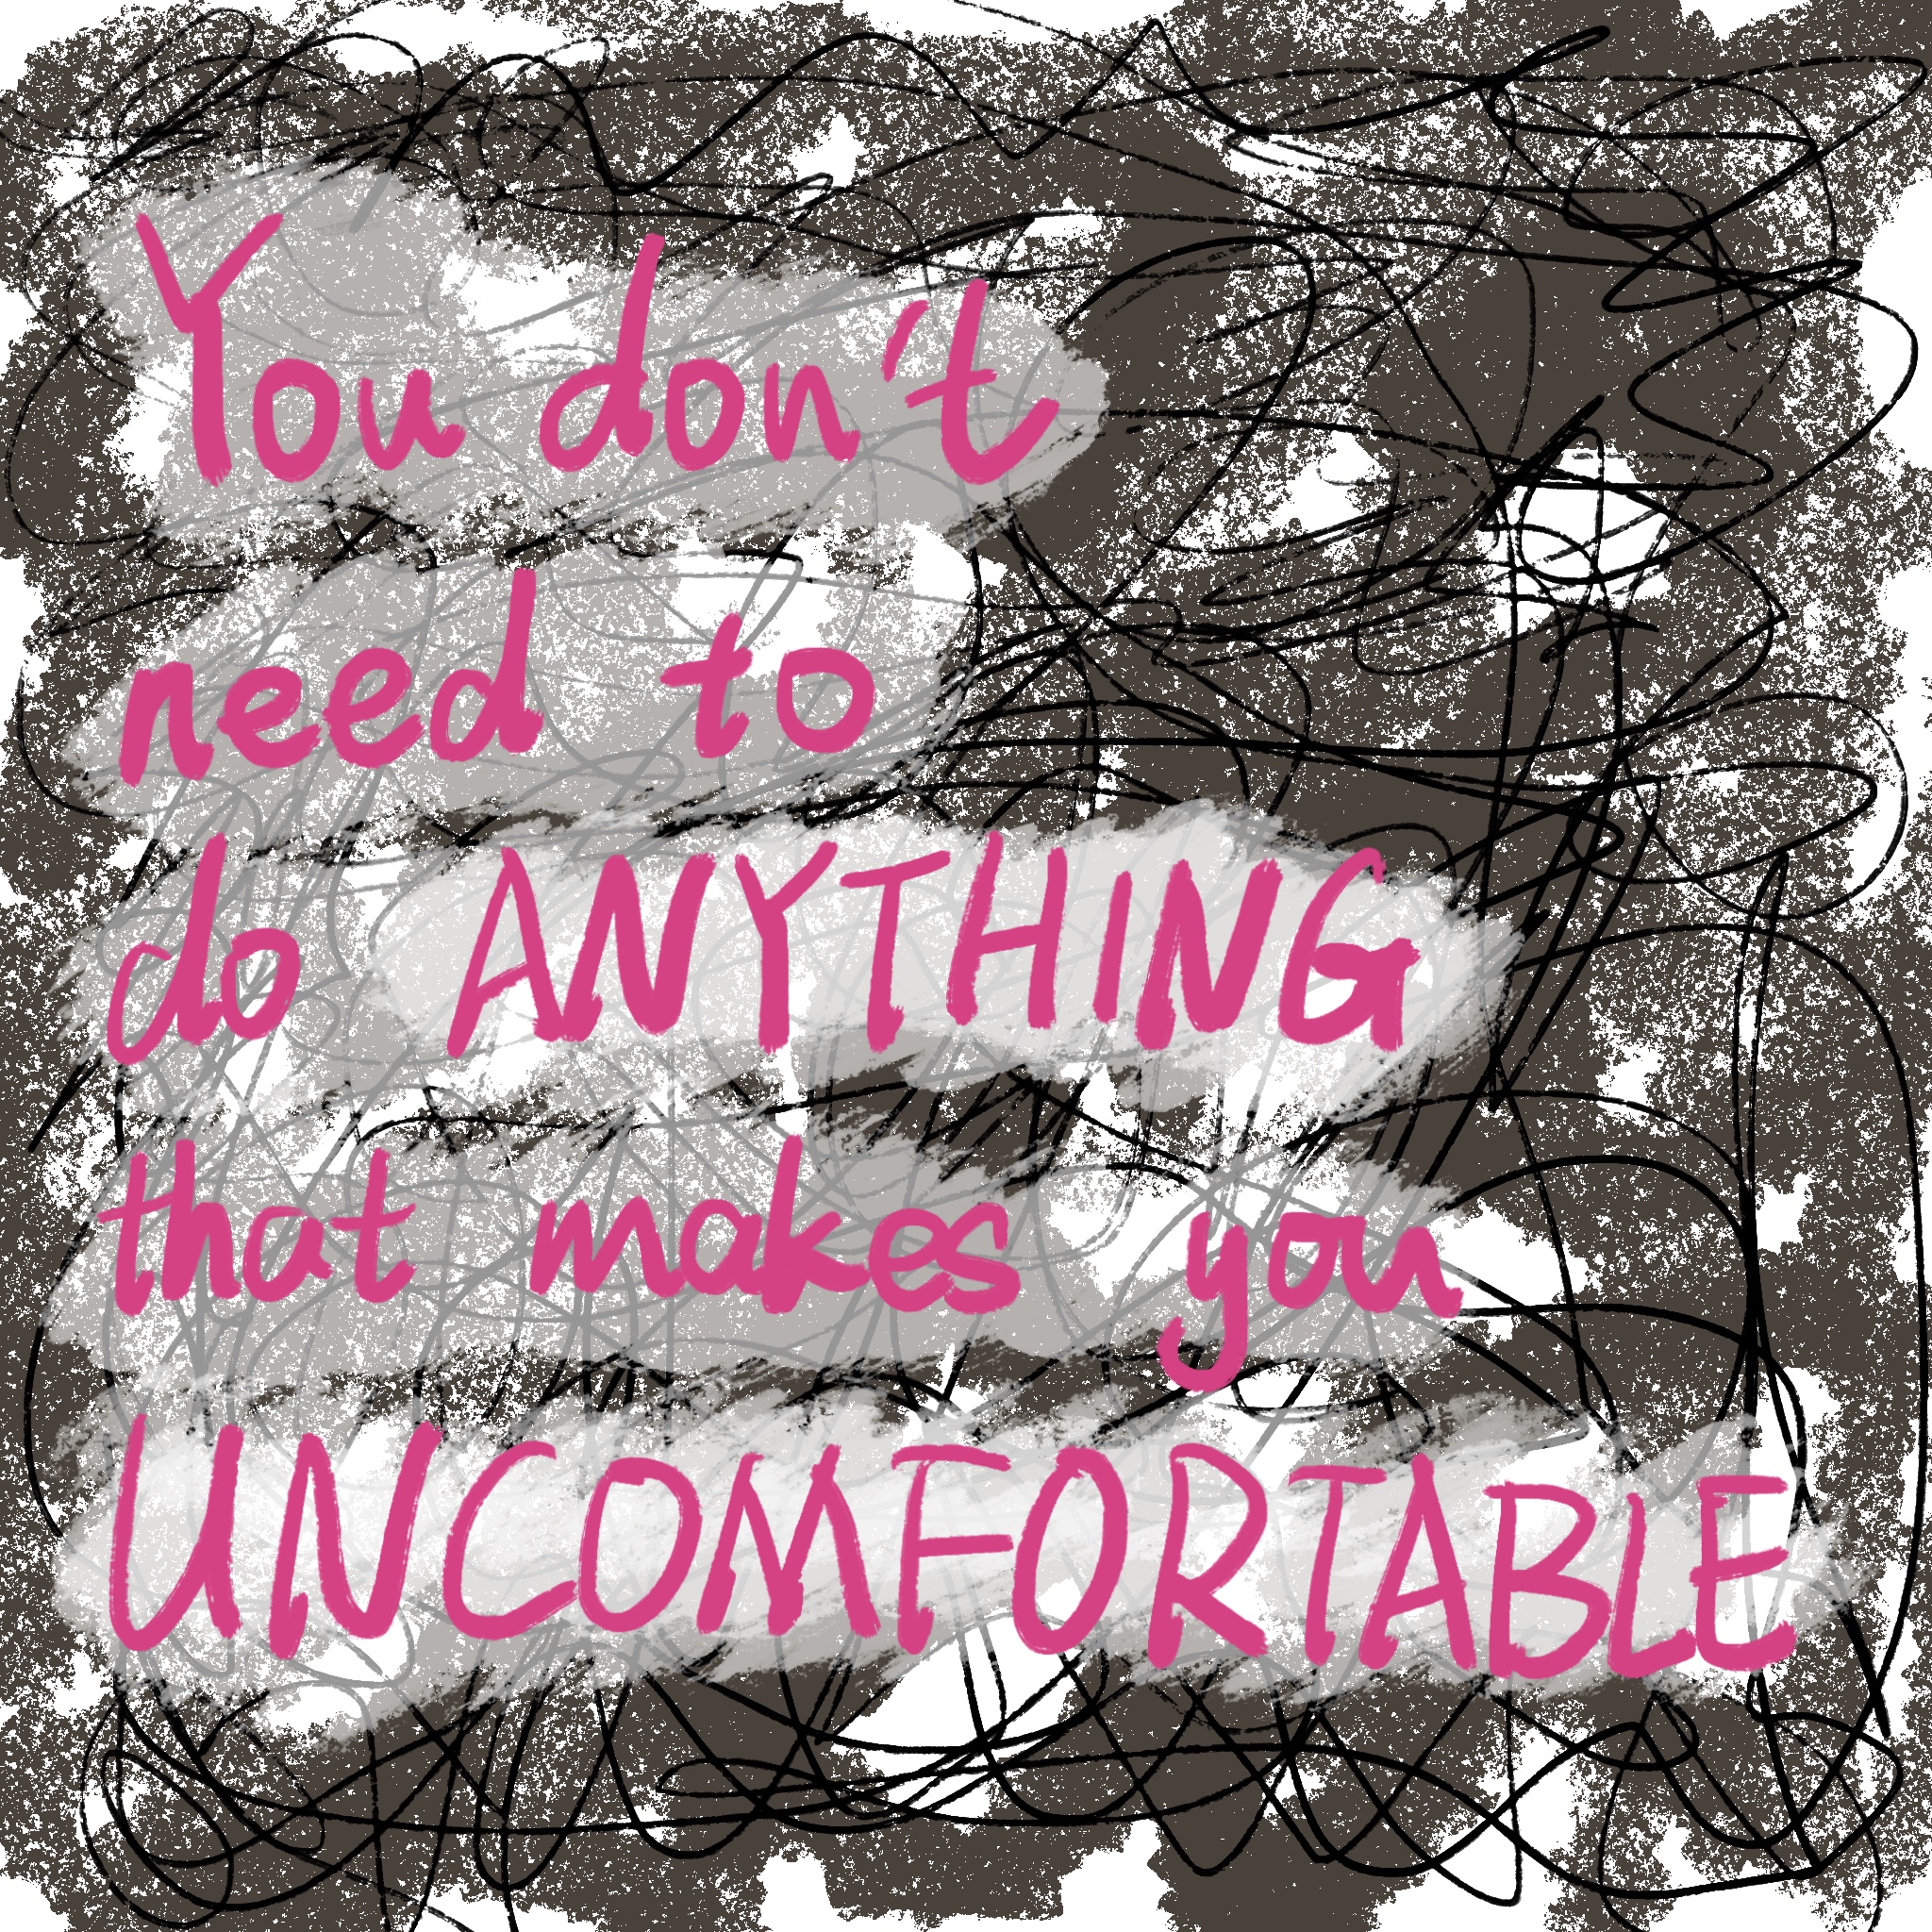 You don't
need to
do ANYTHING
that makes you
UNCOMFORTABLE